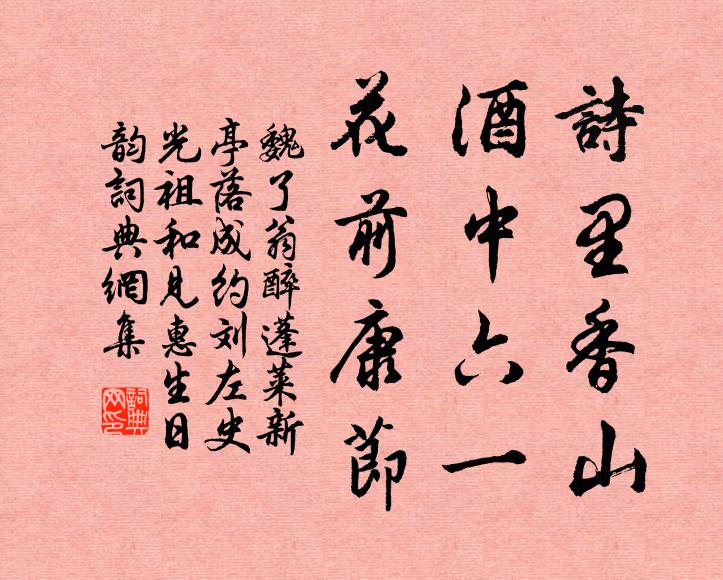 詩里香山
酒中六一
花前康節
魏了翁醉蓬萊新
亭落成约刘左史
光祖和見惠生日
韵詞典網集
詞典
网印